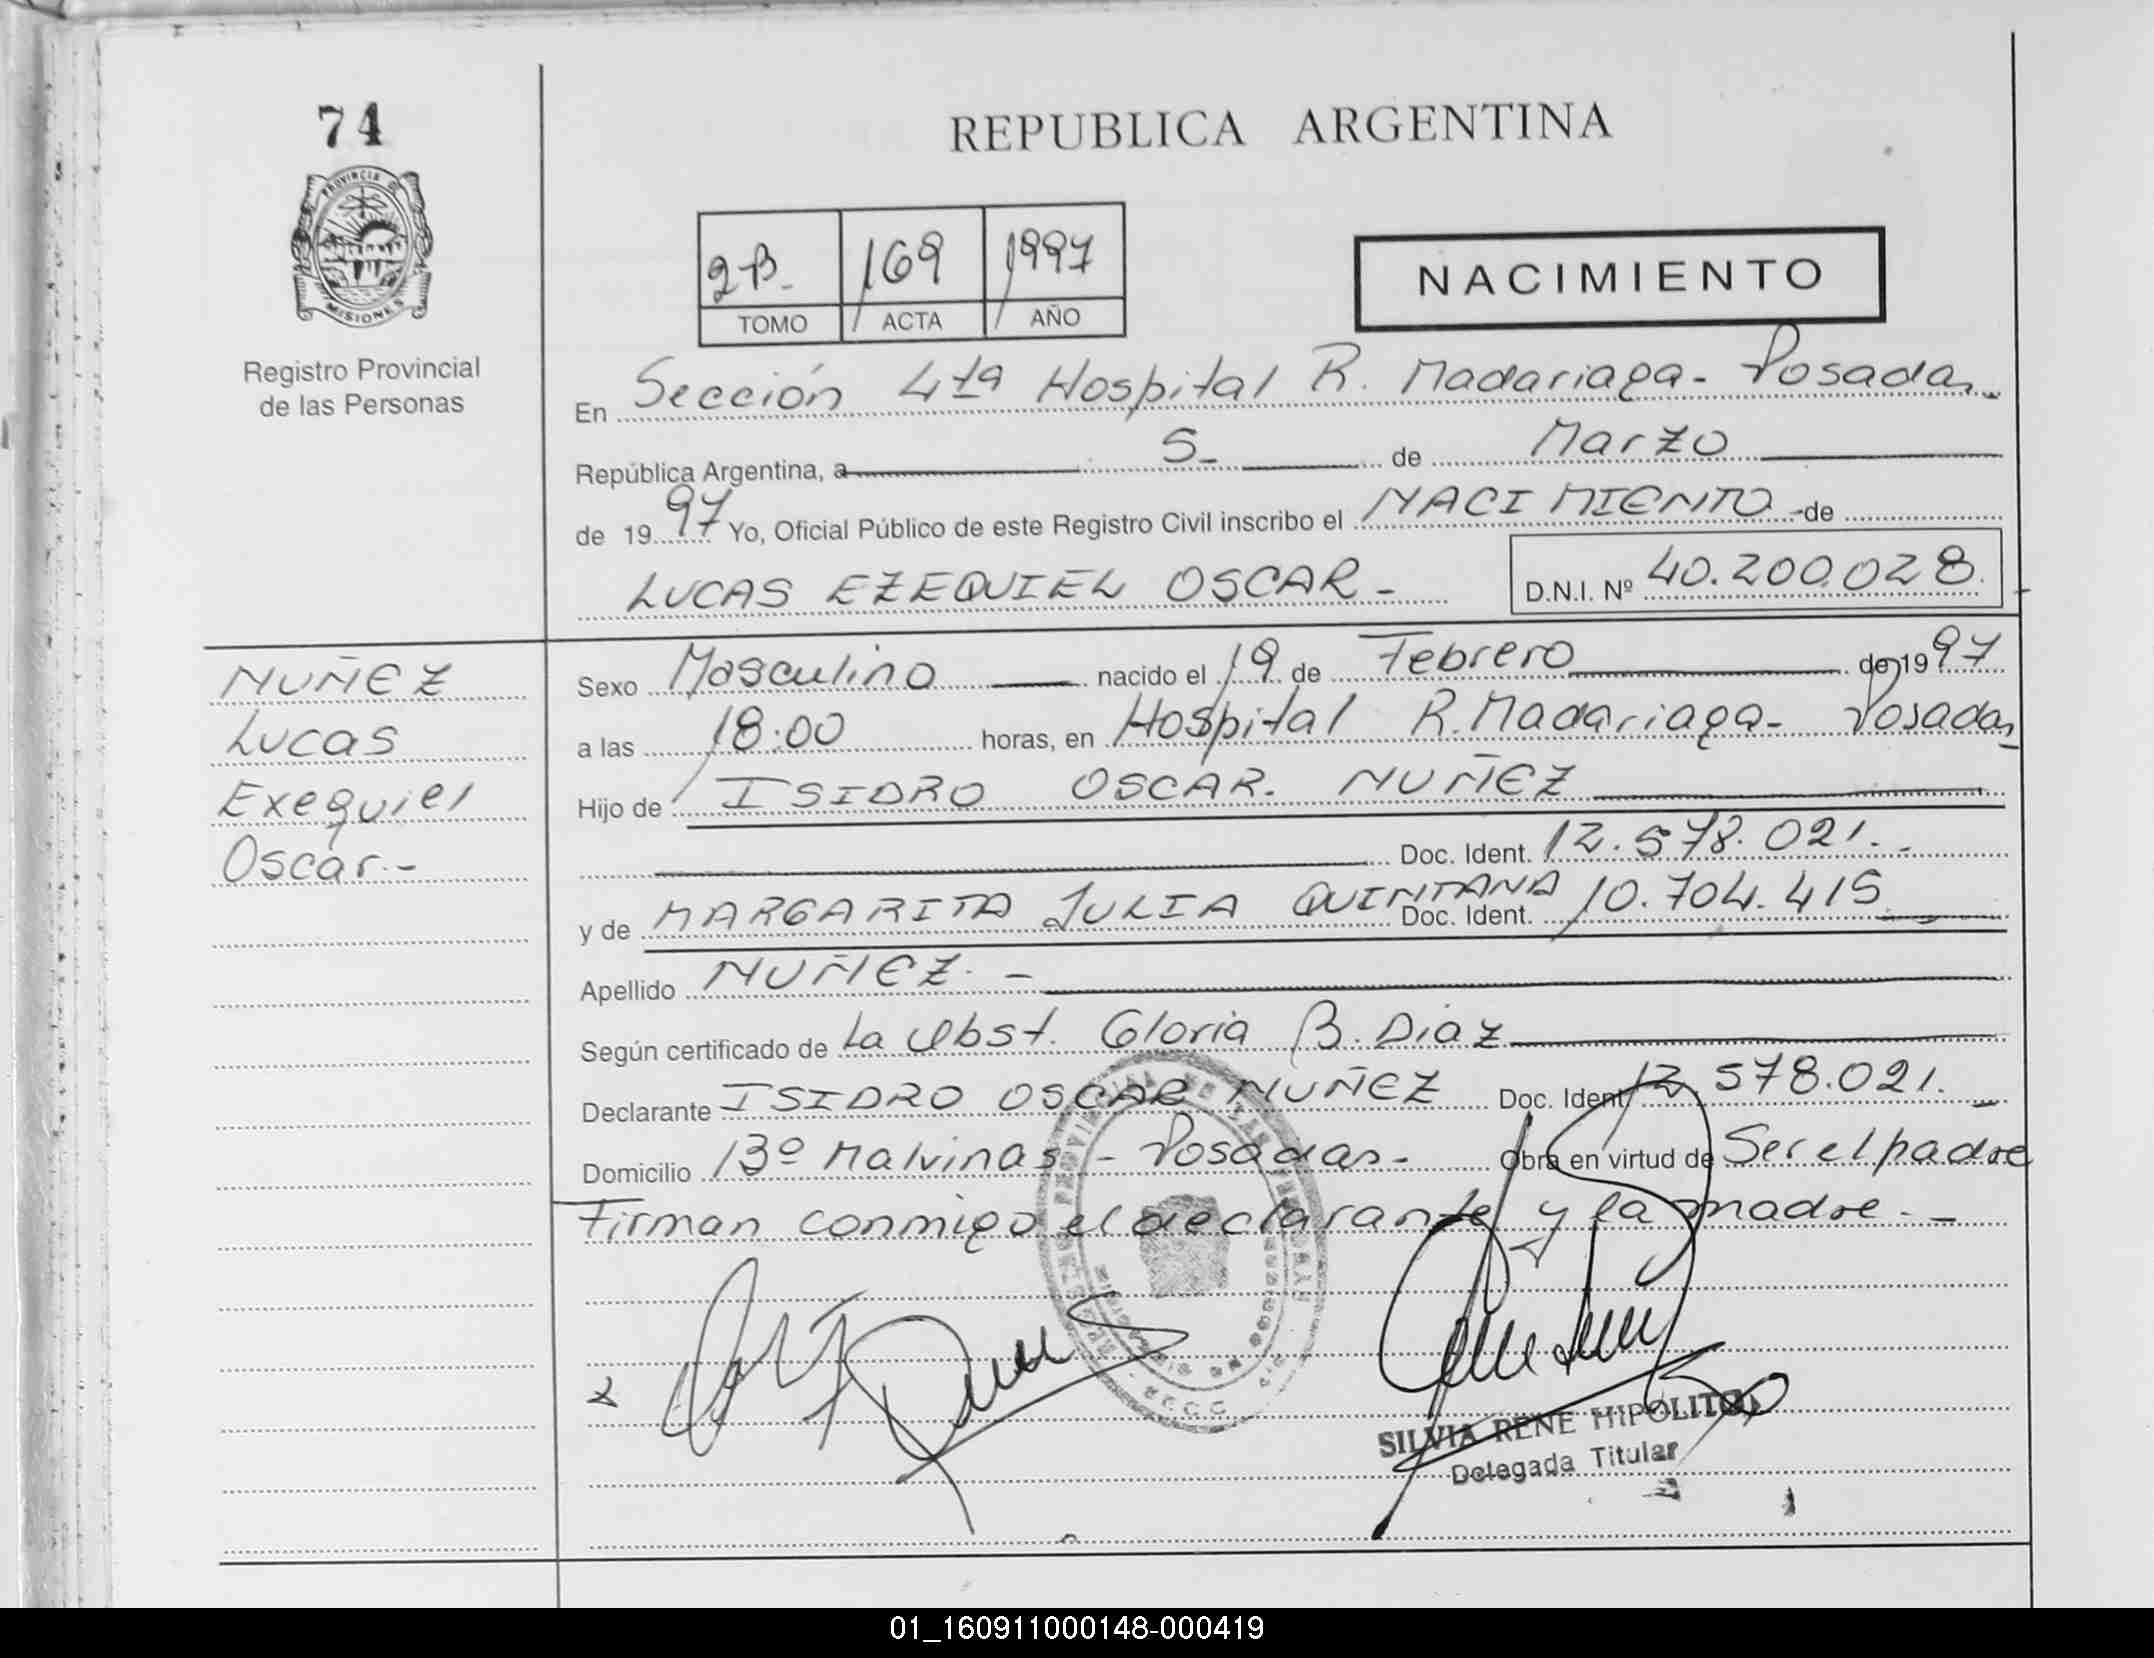 74
PROVINCIA DE
MISIONES
Registro Provincial
de las Personas
REPUBLICA ARGENTINA
2-B- 169 1997
TOMO ACTA AÑO
NACIMIENTO
En Sección 4ta Hospital R. Madariaga- Posadas
República Argentina, a 5- de Marzo
de 1997 Yo, Oficial Público de este Registro Civil inscribo el NACIMIENTO -de
LUCAS EZEQUIEL OSCAR - D.N.I. Nº 40.200.028.
NUÑEZ
Lucas
Exequiel
Oscar.-
Sexo Masculino nacido el 19 de Febrero de 1997
a las 18:00 horas, en Hospital R. Madariaga- Posadas
Hijo de ISIDRO OSCAR. NUÑEZ
Doc. Ident. 12.578.021.-
y de MARGARITA JULIA QUINTANA Doc. Ident. 10.704.415
Apellido NUÑEZ. -
Según certificado de La Obst. Gloria B. Diaz
Declarante ISIDRO OSCAR NUÑEZ Doc. Ident. 12 578.021. -
Domicilio Bº Malvinas - Posadas- Obra en virtud de Ser el padre
Firman conmigo el declarante y la madre. -
SILVIA RENE HIPOLITO
Delegada Titular
01_160911000148-000419